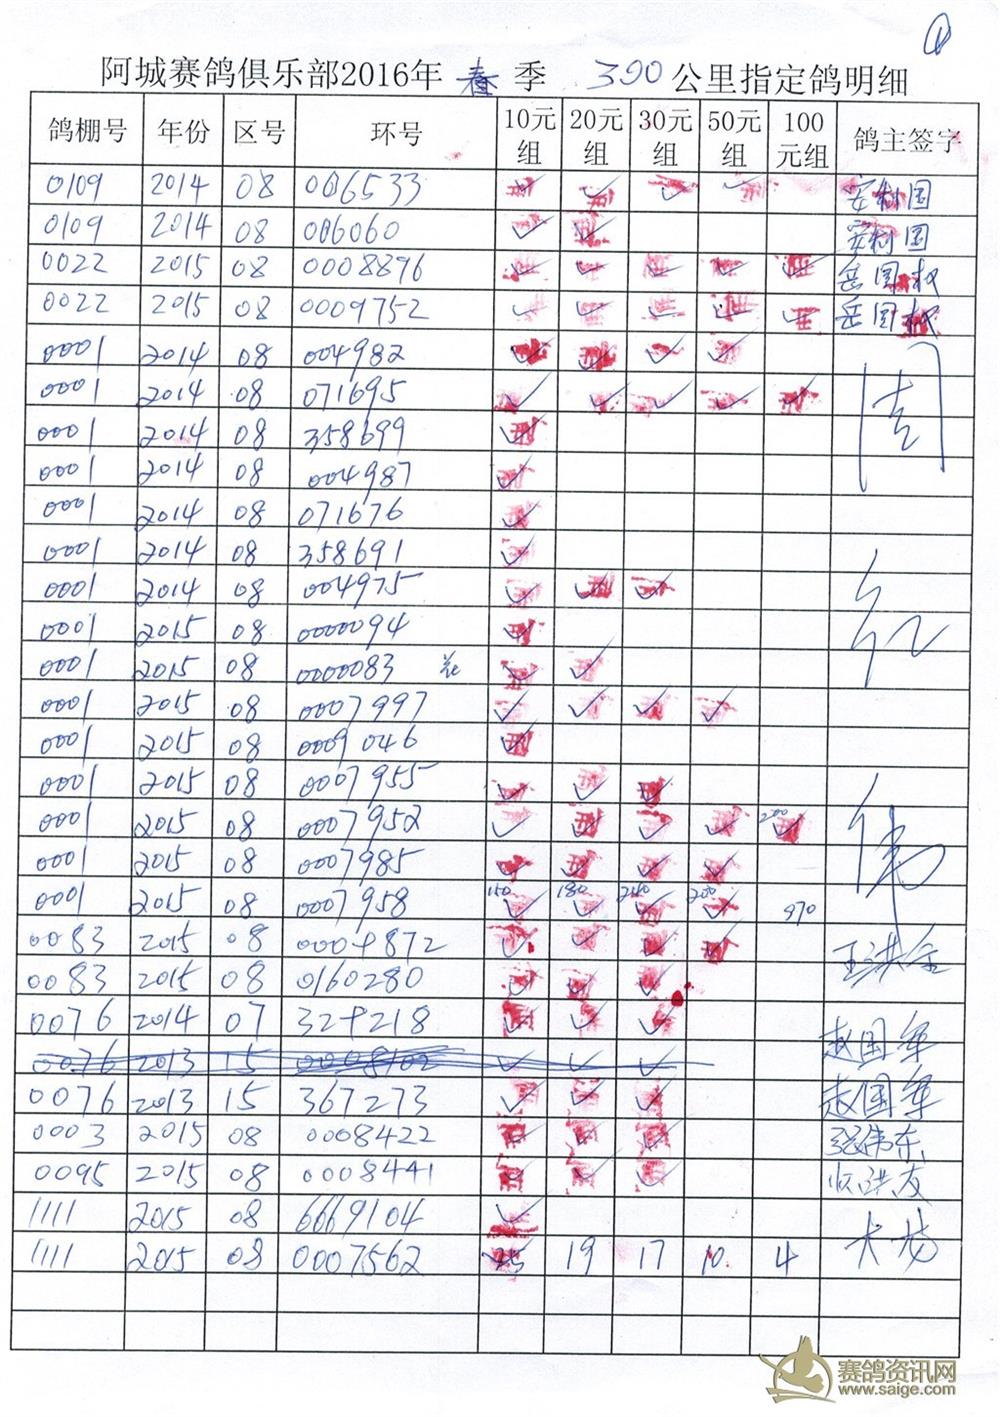 ①
阿城赛鸽俱乐部2016年 春 季 390 公里指定鸽明细
鸽棚号 年份 区号 环号 10元组 20元组 30元组 50元组 100元组 鸽主签字
0109 2014 08 006533 ✓ ✓ ✓ ✓ 安树国
0109 2014 08 006060 ✓ ✓ 安树国
0022 2015 08 0008896 ✓ ✓ ✓ ✓ ✓ 岳国权
0022 2015 08 0009752 ✓ ✓ ✓ ✓ ✓ 岳国权
0001 2014 08 004982 ✓ ✓ ✓ ✓ 周
0001 2014 08 071695 ✓ ✓ ✓ ✓ ✓
0001 2014 08 358699 ✓
0001 2014 08 004987 ✓
0001 2014 08 071676 ✓
0001 2014 08 358691 ✓
0001 2014 08 004975 ✓ ✓ ✓
0001 2015 08 0000094 ✓
0001 2015 08 0000083 ✓ ✓
0001 2015 08 0007997 ✓ ✓ ✓ ✓
0001 2015 08 0009046 ✓
0001 2015 08 0007955 ✓ ✓ ✓
0001 2015 08 0007952 ✓ ✓ ✓ ✓ 200 ✓ 伟
0001 2015 08 0007985 ✓ ✓ ✓ ✓
0001 2015 08 0007958 ✓ 180 ✓ ✓ 200 ✓ 970
0083 2015 08 0004872 ✓ ✓ ✓ ✓ 王洪全
0083 2015 08 0160280 ✓ ✓ ✓
0076 2014 07 324218 ✓ ✓ ✓ 赵国军
0076 2013 15 0008102 ✓ ✓ ✓
0076 2013 15 367273 ✓ ✓ ✓ 赵国军
0003 2015 08 0008422 ✓ ✓ ✓ 张伟东
0095 2015 08 0008441 ✓ ✓ ✓
1111 2015 08 6669104 ✓
1111 2015 08 0007562 25 19 17 10 4
赛鸽资讯网
www.saige.com